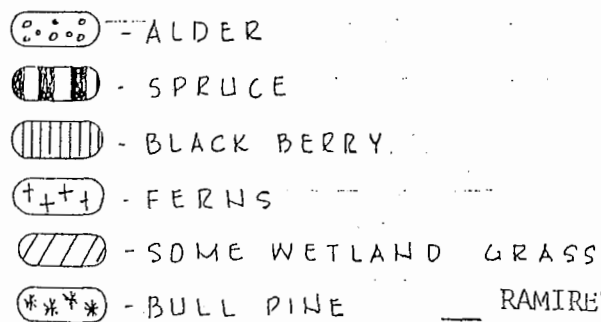 - ALDER
- SPRUCE
- BLACK BERRY.
- FERNS
- SOME WETLAND GRASS
- BULL PINE